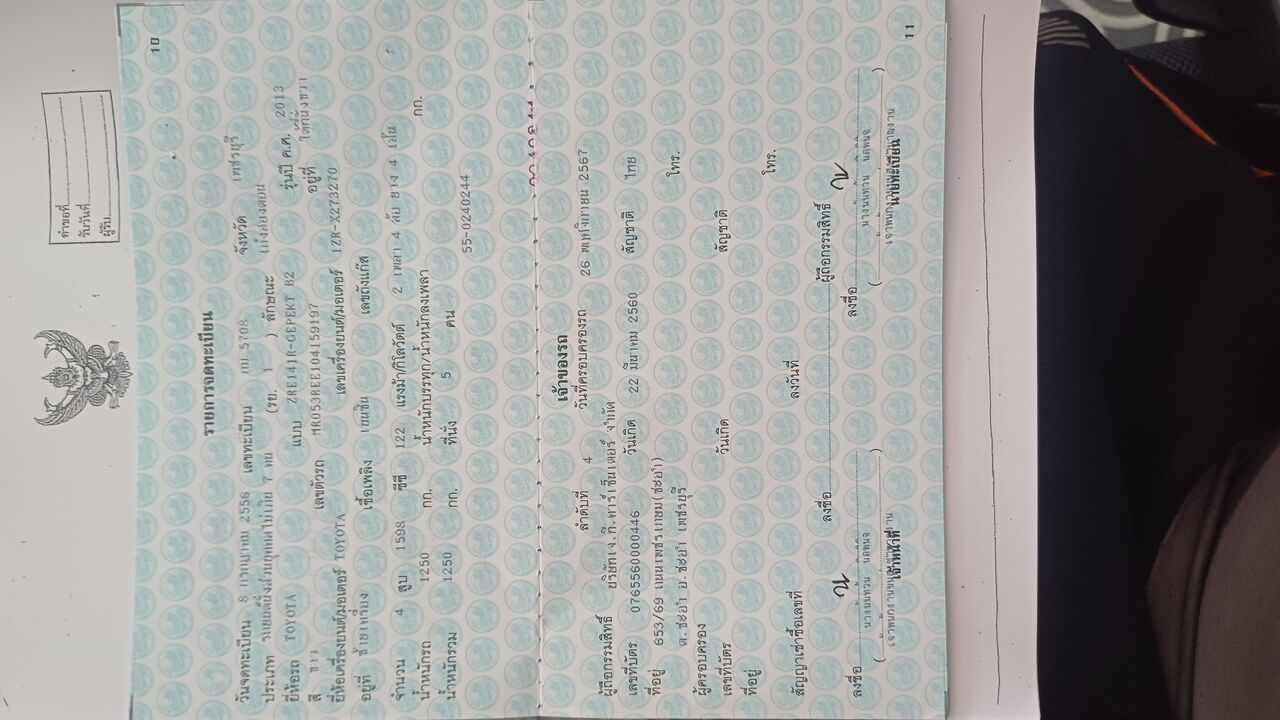 คำขอที่
รับวันที่
ผู้รับ
10
รายการจดทะเบียน
วันจดทะเบียน 8 กรกฎาคม 2556 เลขทะเบียน กม 5708 จังหวัด เพชรบุรี
ประเภท รถยนต์นั่งส่วนบุคคลไม่เกิน 7 คน (รย. 1 ) ลักษณะ เก๋งสองตอน
ยี่ห้อรถ TOYOTA แบบ ZRE141R-GEPEKT B2 รุ่นปี ค.ศ. 2013
สี ขาว เลขตัวรถ MR053REE104159197 อยู่ที่ ใต้ที่นั่งขวา
ยี่ห้อเครื่องยนต์/มอเตอร์ TOYOTA เลขเครื่องยนต์/มอเตอร์ 1ZR-X273270
อยู่ที่ ซ้ายเครื่อง เชื้อเพลิง เบนซิน เลขถังแก๊ส
จำนวน 4 สูบ 1598 ซีซี 122 แรงม้า/กิโลวัตต์ 2 เพลา 4 ล้อ ยาง 4 เส้น
น้ำหนักรถ 1250 กก. น้ำหนักบรรทุก/น้ำหนักลงเพลา กก.
น้ำหนักรวม 1250 กก. ที่นั่ง 5 คน
55-0240244
เจ้าของรถ
ลำดับที่ 4 วันที่ครอบครองรถ 26 พฤศจิกายน 2567
ผู้ถือกรรมสิทธิ์ บริษัทเจ.ที.คาร์เซ็นเตอร์ จำกัด
เลขที่บัตร 0765560000446 วันเกิด 22 มีนาคม 2560 สัญชาติ ไทย
ที่อยู่ 653/69 ถนนเพชรเกษม(ชะอำ) โทร.
ต.ชะอำ อ.ชะอำ เพชรบุรี
ผู้ครอบครอง
เลขที่บัตร วันเกิด สัญชาติ
ที่อยู่ โทร.
สัญญาเช่าซื้อเลขที่ ลงวันที่
ลงชื่อ ผู้ถือกรรมสิทธิ์
ลงชื่อ ลงชื่อ
เจ้าหน้าที่ นายทะเบียน
11